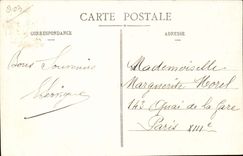 CARTE POSTALE
CORRESPONDANCE
ADRESSE
Bons Souvenirs
Mademoiselle
Marguerite Morel
143 Quai de la Gare
Paris XIIIe